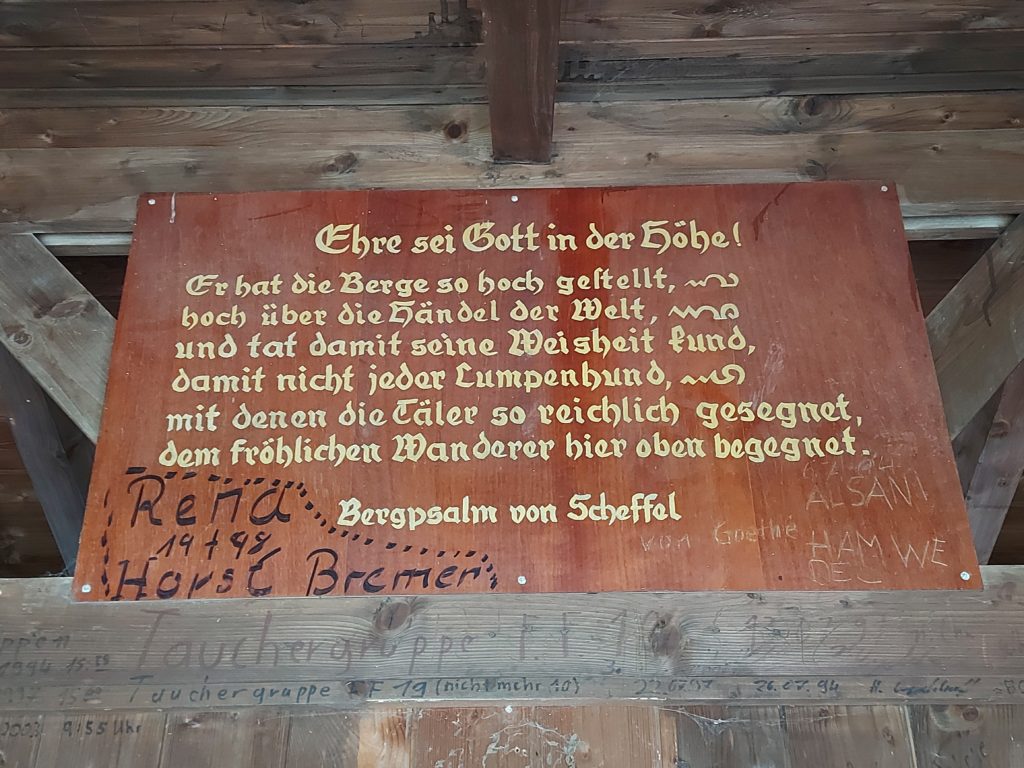 Ehre sei Gott in der Höhe!
Er hat die Berge so hoch gestellt,
hoch über die Händel der Welt,
und tat damit seine Weisheit kund,
damit nicht jeder Lumpenhund,
mit denen die Täler so reichlich gesegnet,
dem fröhlichen Wanderer hier oben begegnet.
Bergpsalm von Scheffel
von Goethe
ALSANI
HAMWE
DEL
Rena
19+98
Horst Bremen
Tauchergruppe F.F.
1994 15
Tauchergruppe FF 19 (nicht mehr 10) 26.07.94
2003 9:55 Uhr